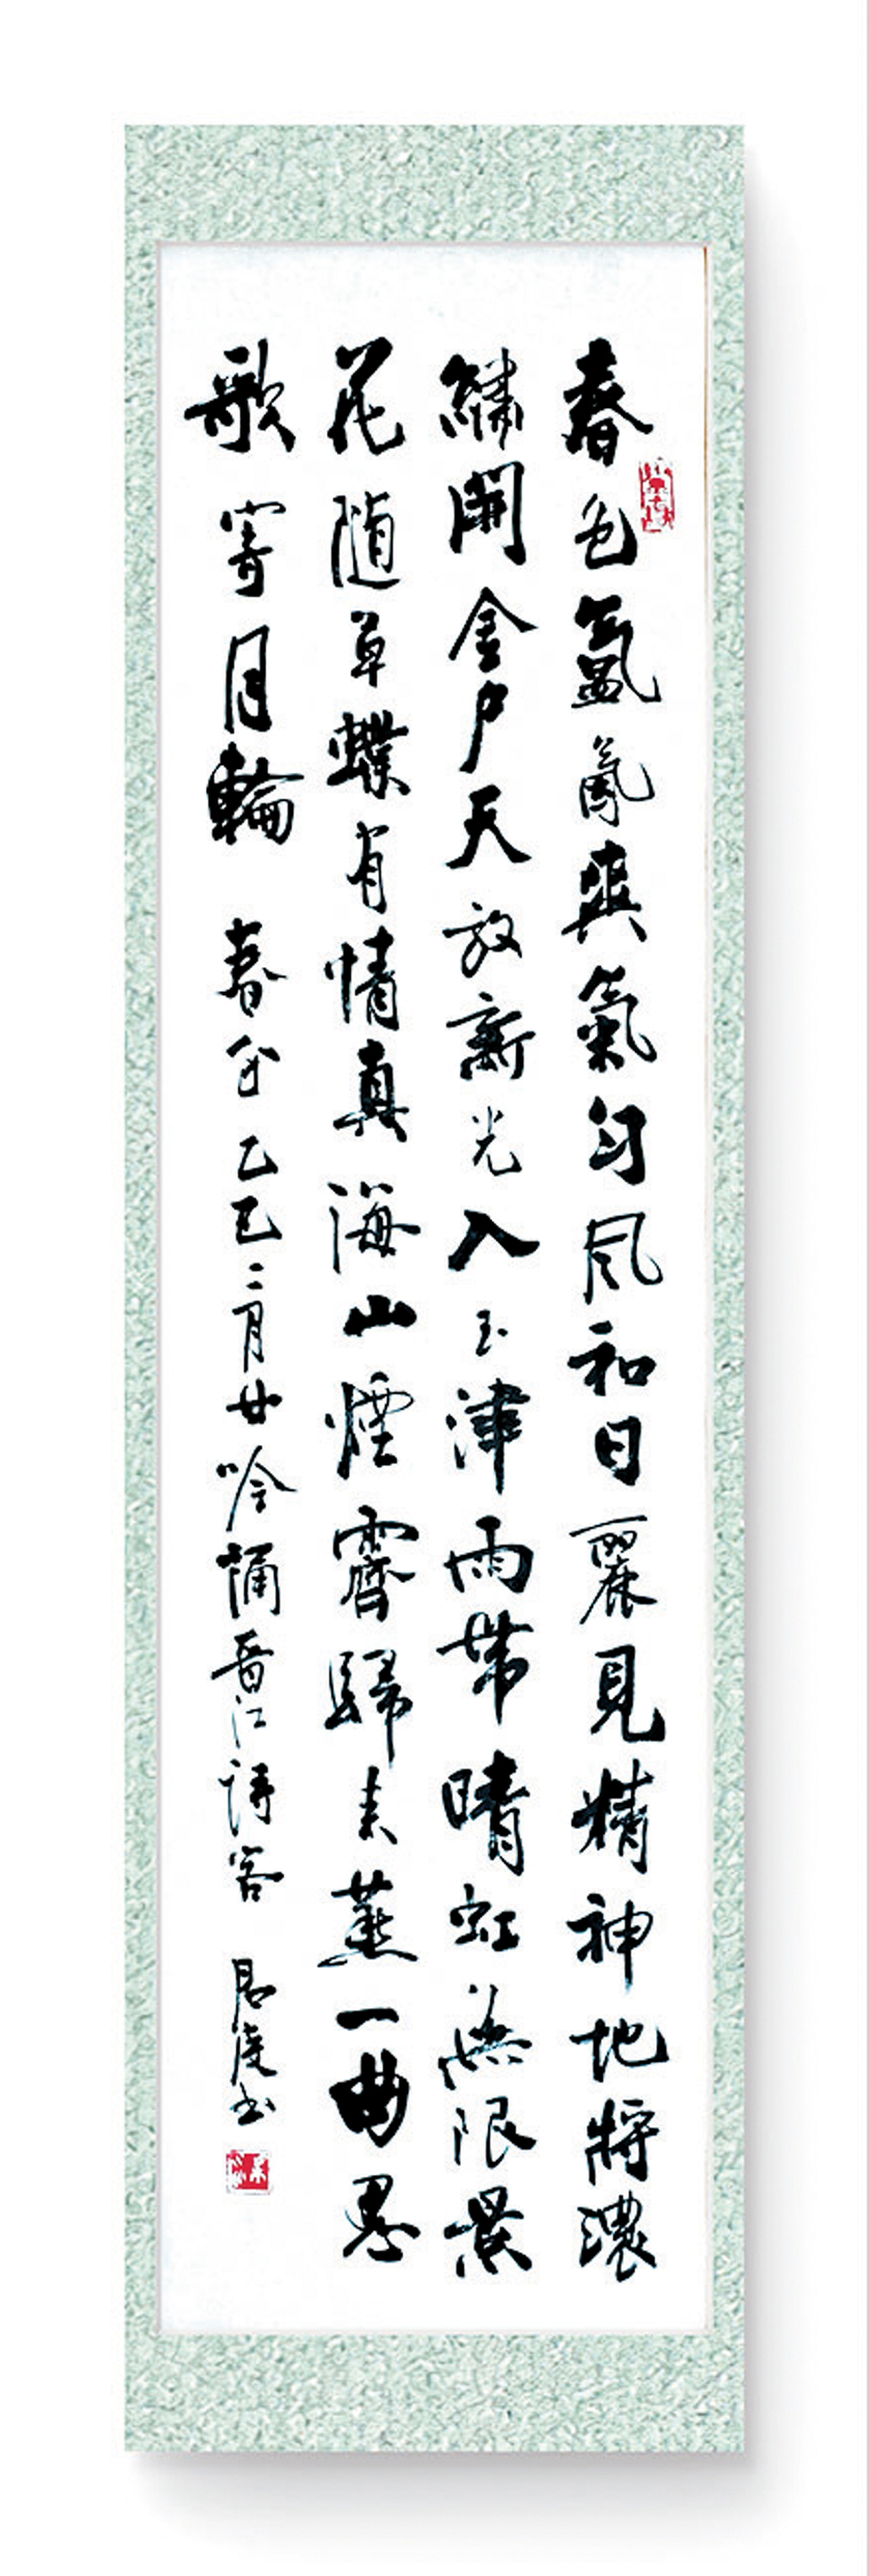 春色氳氤爽氣匀风和日麗見精神地將濃
繡開金户天放新光入玉津雨帶晴虹無限景
花随草蝶有情真海山煙霽歸来燕一曲思
歌寄月輪 春分乙巳二月廿吟誦晋江詩客 书